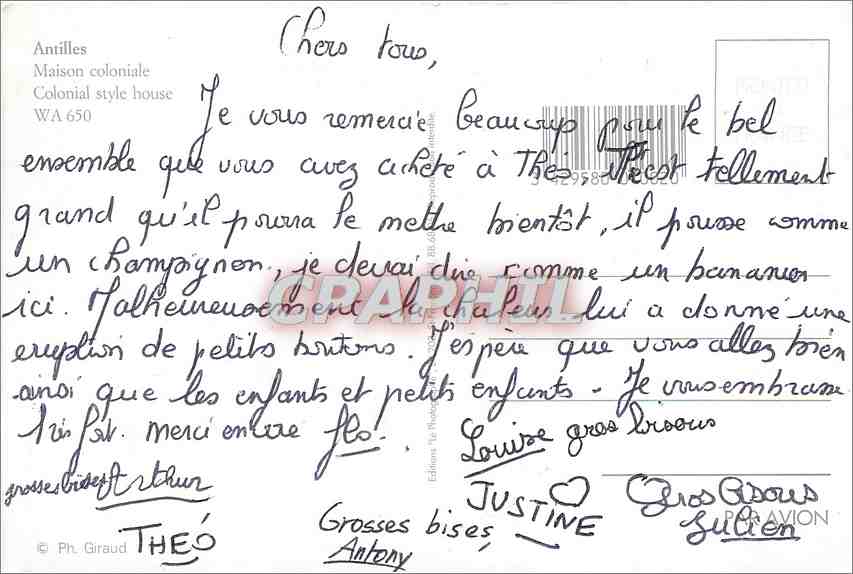 Antilles
Maison coloniale
Colonial style house
WA 650
Chers tous,
Je vous remercie beaucoup pour le bel
ensemble que vous avez acheté à Théo, il est tellement
grand qu'il pourra le mettre bientôt, il pousse comme
un champignon, je devrai dire comme un bananier
ici. Malheureusement la chaleur lui a donné une
eruption de petits boutons. J'espère que vous allez bien
ainsi que les enfants et petits enfants. Je vous embrasse
très fort. merci encore flo.
Louise gros bisous
grosses bises Arthur
JUSTINE
Gros bisous
Julien
THÉO
Grosses bises,
Antony
PAR AVION
© Ph. Giraud
Editions "Le Photographe"
CPAPHIL